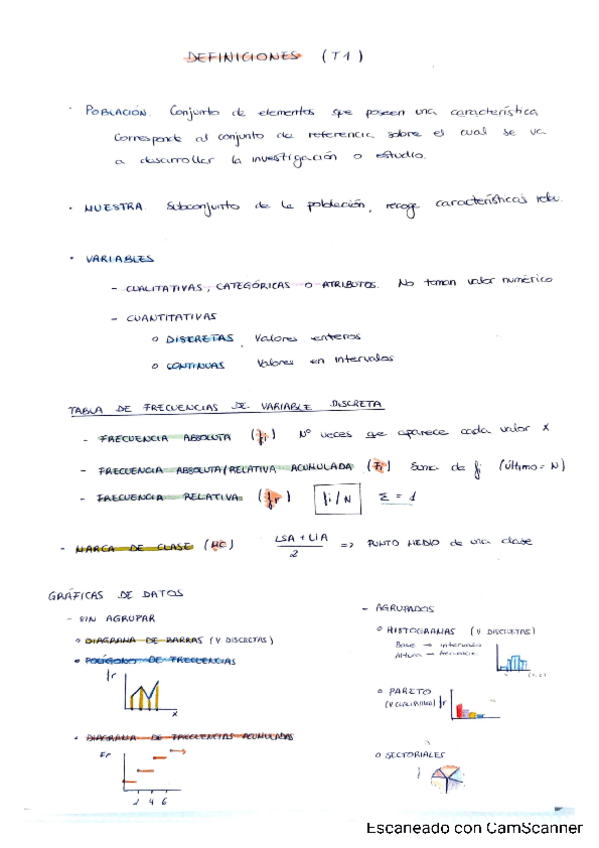 DEFINICIONES (T1)
· POBLACIÓN. Conjunto de elementos que poseen una característica
Corresponde al conjunto de referencia sobre el cual se va
a desarrollar la investigación o estudio.
· MUESTRA. Subconjunto de la población, recoge características relev.
· VARIABLES
- CUALITATIVAS, CATEGÓRICAS O ATRIBUTOS. No toman valor numérico
- CUANTITATIVAS
o DISCRETAS. Valores enteros
o CONTINUAS Valores en intervalos
TABLA DE FRECUENCIAS DE VARIABLE DISCRETA
- FRECUENCIA ABSOLUTA (fi) Nº veces que aparece cada valor X
- FRECUENCIA ABSOLUTA/RELATIVA ACUMULADA (Fi) Suma de fi (último = N)
- FRECUENCIA RELATIVA (fr) fi/N Σ = 1
- MARCA DE CLASE (MC) LSA + LIA / 2 => PUNTO MEDIO de una clase
GRÁFICAS DE DATOS
- SIN AGRUPAR
o DIAGRAMA DE BARRAS (V DISCRETAS)
o POLÍGONO DE FRECUENCIAS
fr
x
· DIAGRAMA DE FRECUENCIAS ACUMULADAS
Fr
2 4 6
- AGRUPADOS
o HISTOGRAMAS (V DISCRETAS)
Base → intervalo
Altura → frecuencia
o PARETO
fr
o SECTORIALES
Escaneado con CamScanner